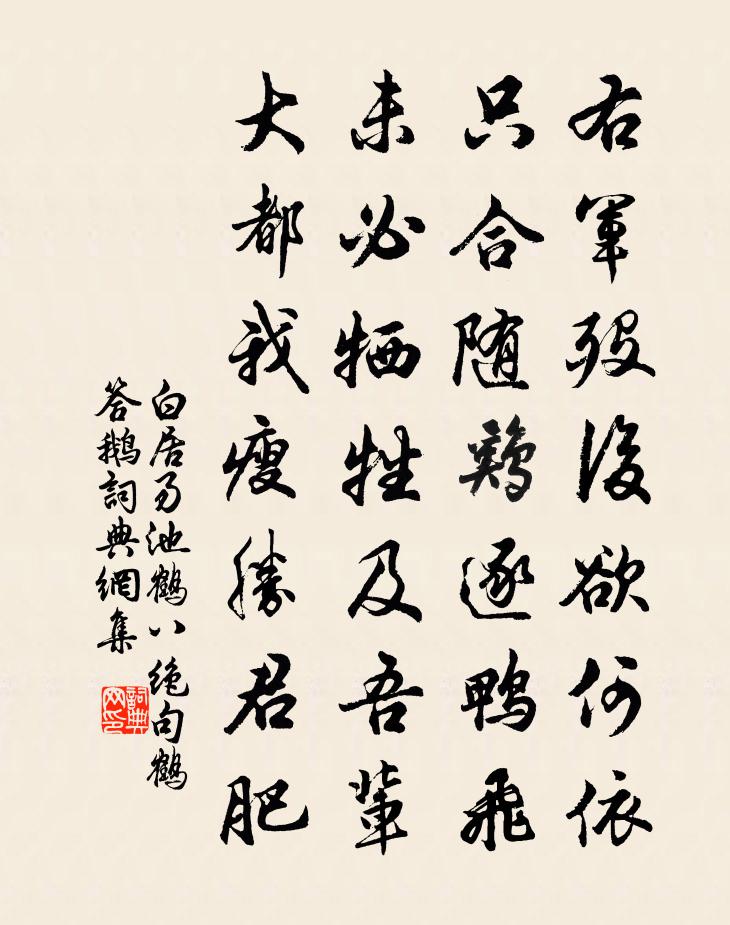 右軍歿後欲何依
只合随鷄逐鴨飛
未必牺牲及吾輩
大都我瘦勝君肥
白居易池鶴八绝句鶴
答鹅詞典網集
詞典网印